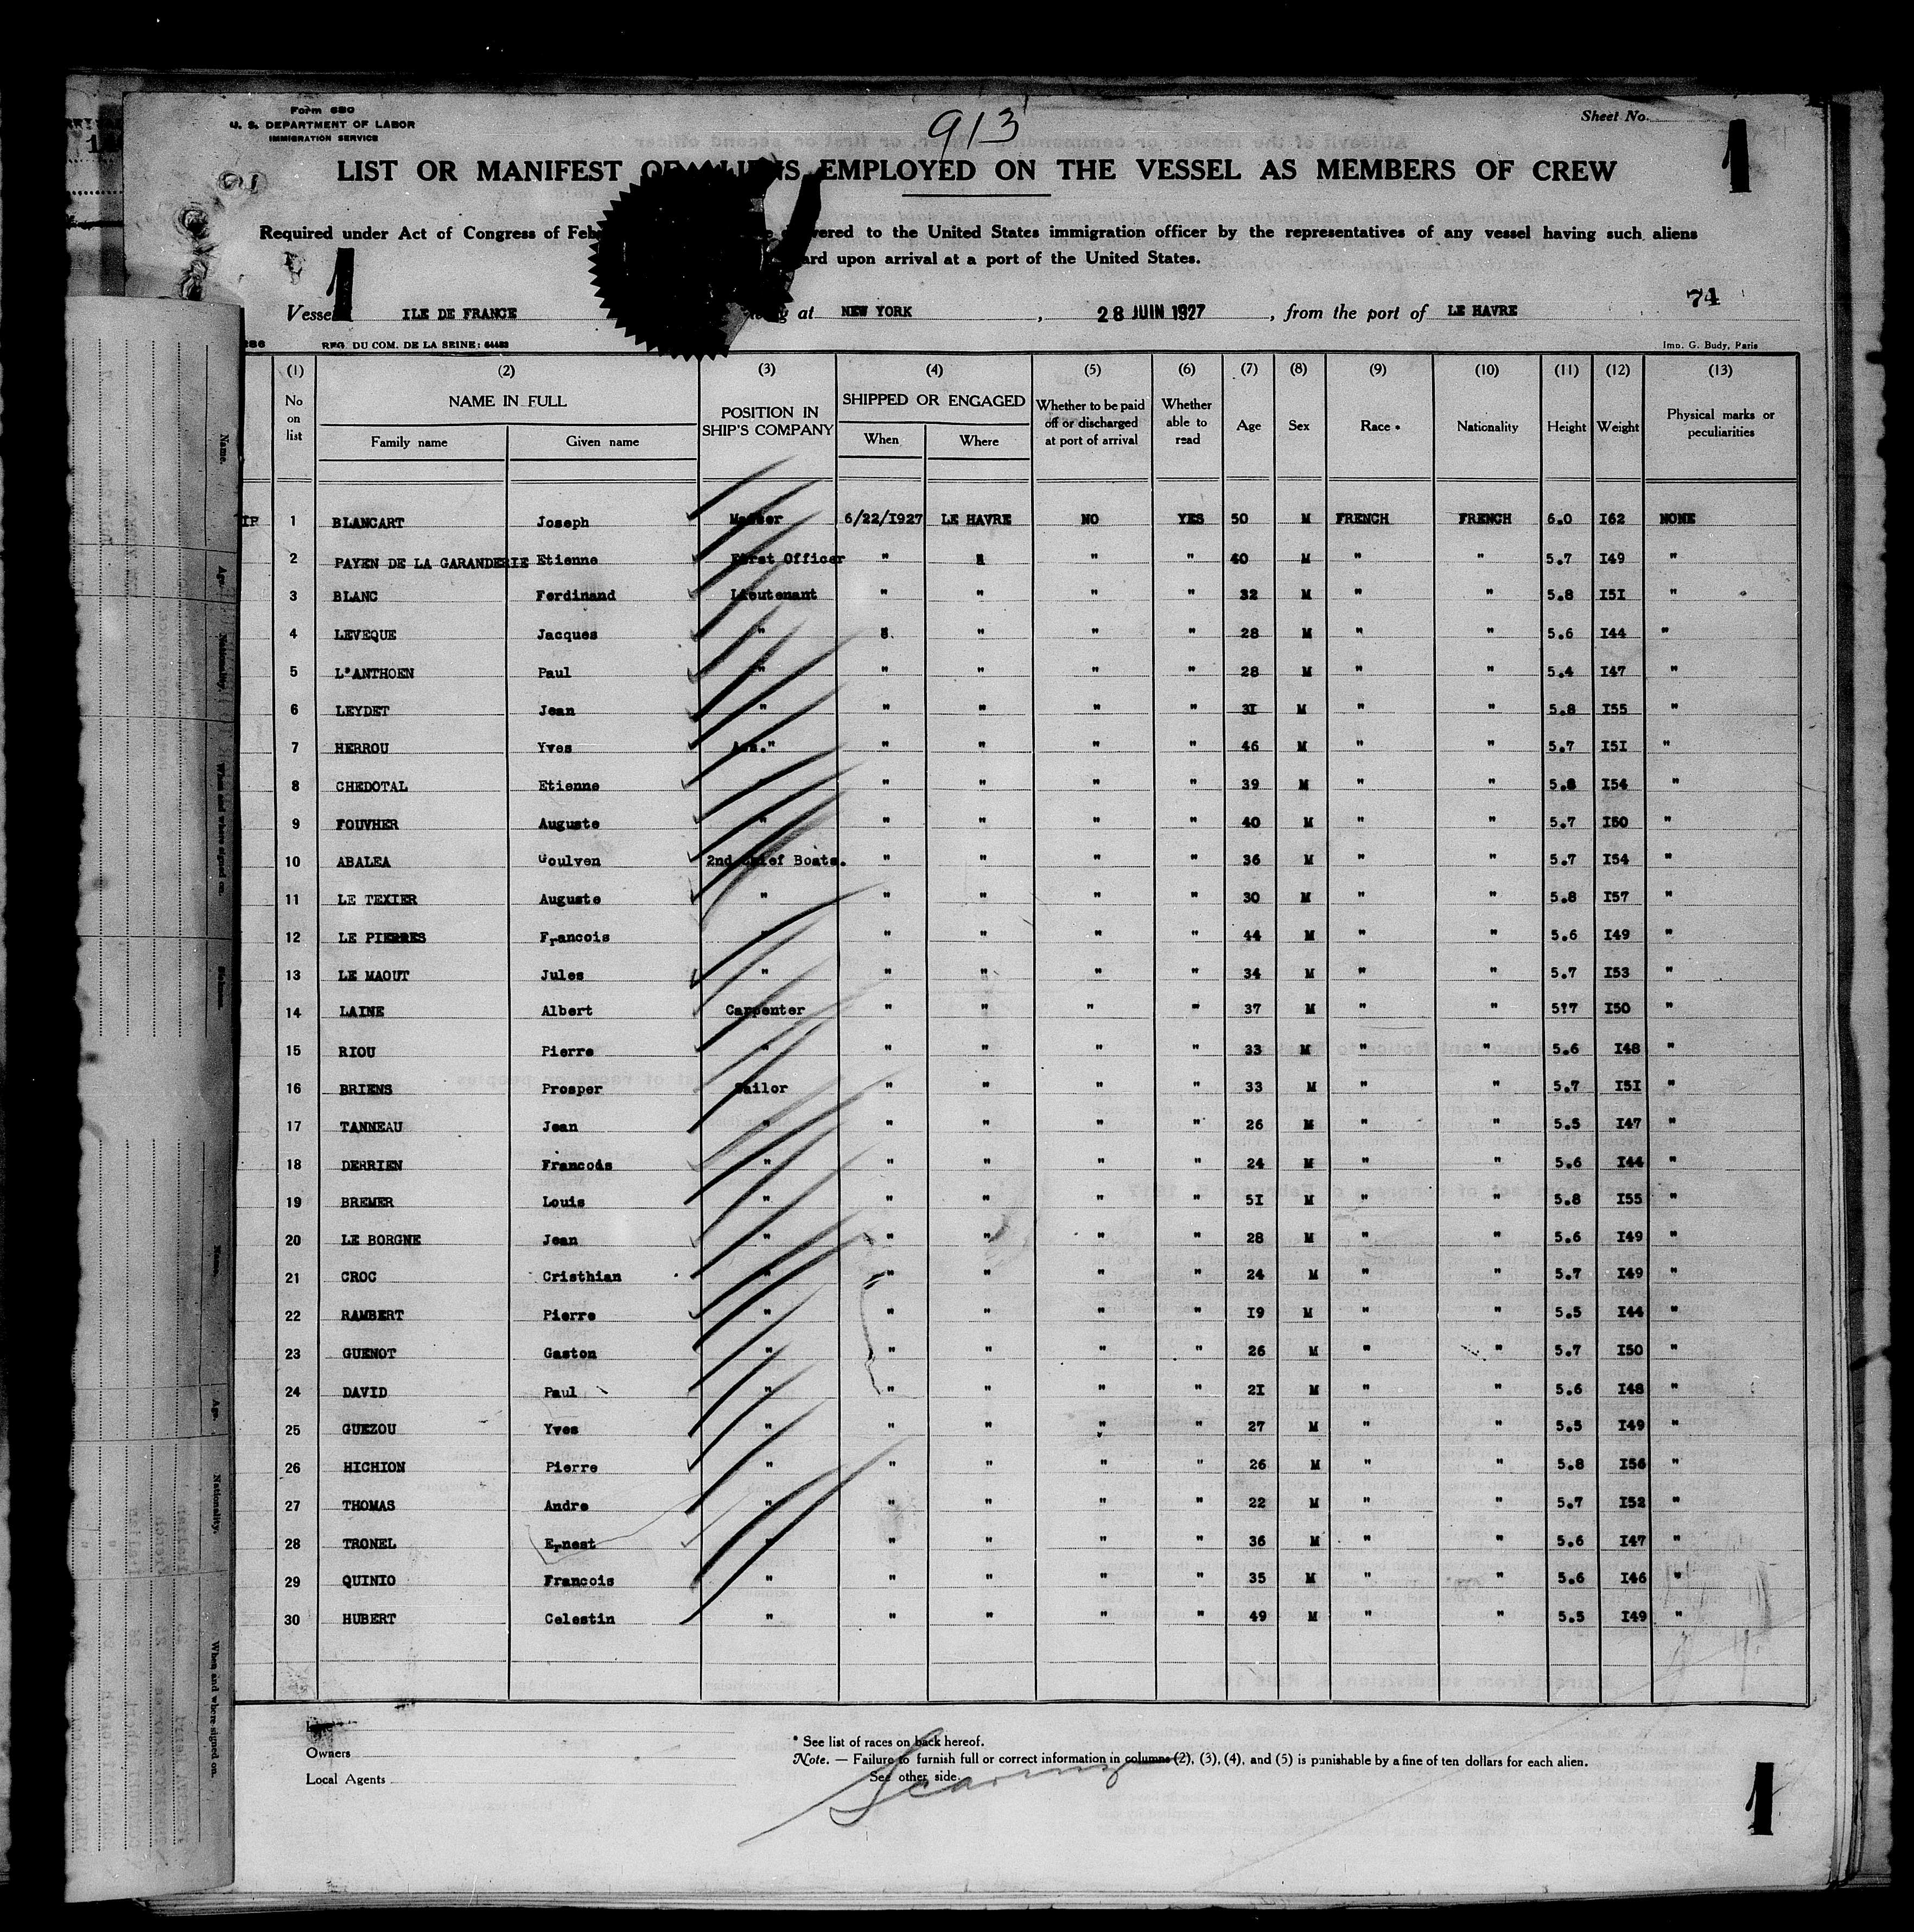 Form 680
U. S. DEPARTMENT OF LABOR
IMMIGRATION SERVICE
913
Sheet No.
1
LIST OR MANIFEST OF ALIENS EMPLOYED ON THE VESSEL AS MEMBERS OF CREW
Required under Act of Congress of Feb ered to the United States immigration officer by the representatives of any vessel having such aliens
ard upon arrival at a port of the United States.
1
74
Vessel ILE DE FRANCE at NEW YORK , 28 JUIN 1927 , from the port of LE HAVRE
REG. DU COM. DE LA SEINE: Imp. G. Budy, Paris
(1) (2) (3) (4) (5) (6) (7) (8) (9) (10) (11) (12) (13)
No on list NAME IN FULL POSITION IN SHIP'S COMPANY SHIPPED OR ENGAGED Whether to be paid off or discharged at port of arrival Whether able to read Age Sex Race * Nationality Height Weight Physical marks or peculiarities
Family name Given name When Where
1 BLANCART Joseph Master 6/22/1927 LE HAVRE NO YES 50 M FRENCH FRENCH 6.0 I62 NONE
2 PAYEN DE LA GARANDERIE Etienne First Officer " " " " 40 M " " 5.7 I49 "
3 BLANC Ferdinand Lieutenant " " " " 32 M " " 5.8 I5I "
4 LEVEQUE Jacques " " " " " 28 M " " 5.6 I44 "
5 L'ANTHOEN Paul " " " " " 28 M " " 5.4 I47 "
6 LEYDET Jean " " " " " 3I M " " 5.8 I55 "
7 HERROU Yves Ass." " " " " 46 M " " 5.7 I5I "
8 CHEDOTAL Etienne " " " " " 39 M " " 5.8 I54 "
9 FOUVHER Auguste " " " " " 40 M " " 5.7 I50 "
10 ABALEA Goulven 2nd Chief Boats. " " " " 36 M " " 5.7 I54 "
11 LE TEXIER Auguste " " " " " 30 M " " 5.8 I57 "
12 LE PIERRES Francois " " " " " 44 M " " 5.6 I49 "
13 LE MAOUT Jules " " " " " 34 M " " 5.7 I53 "
14 LAINE Albert Carpenter " " " " 37 M " " 5?7 I50 "
15 RIOU Pierre " " " " " 33 M " " 5.6 I48 "
16 BRIENS Prosper Sailor " " " " 33 M " " 5.7 I5I "
17 TANNEAU Jean " " " " " 26 M " " 5.5 I47 "
18 DERRIEN Francois " " " " " 24 M " " 5.6 I44 "
19 BREMER Louis " " " " " 5I M " " 5.8 I55 "
20 LE BORGNE Jean " " " " " 28 M " " 5.6 I49 "
21 CROC Cristhian " " " " " 24 M " " 5.7 I49 "
22 RAMBERT Pierre " " " " " I9 M " " 5.5 I44 "
23 GUENOT Gaston " " " " " 26 M " " 5.7 I50 "
24 DAVID Paul " " " " " 2I M " " 5.6 I48 "
25 GUEZOU Yves " " " " " 27 M " " 5.5 I49 "
26 HICHION Pierre " " " " " 26 M " " 5.8 I56 "
27 THOMAS Andre " " " " " 22 M " " 5.7 I52 "
28 TRONEL Ernest " " " " " 36 M " " 5.6 I47 "
29 QUINIO Francois " " " " " 35 M " " 5.6 I46 "
30 HUBERT Celestin " " " " " 49 M " " 5.5 I49 "
Owners
Local Agents
* See list of races on back hereof.
Note. — Failure to furnish full or correct information in columns (2), (3), (4), and (5) is punishable by a fine of ten dollars for each alien.
See other side.
1
Name.
Age.
Nationality.
When and where signed on.
Name.
Age.
Nationality.
When and where signed on.